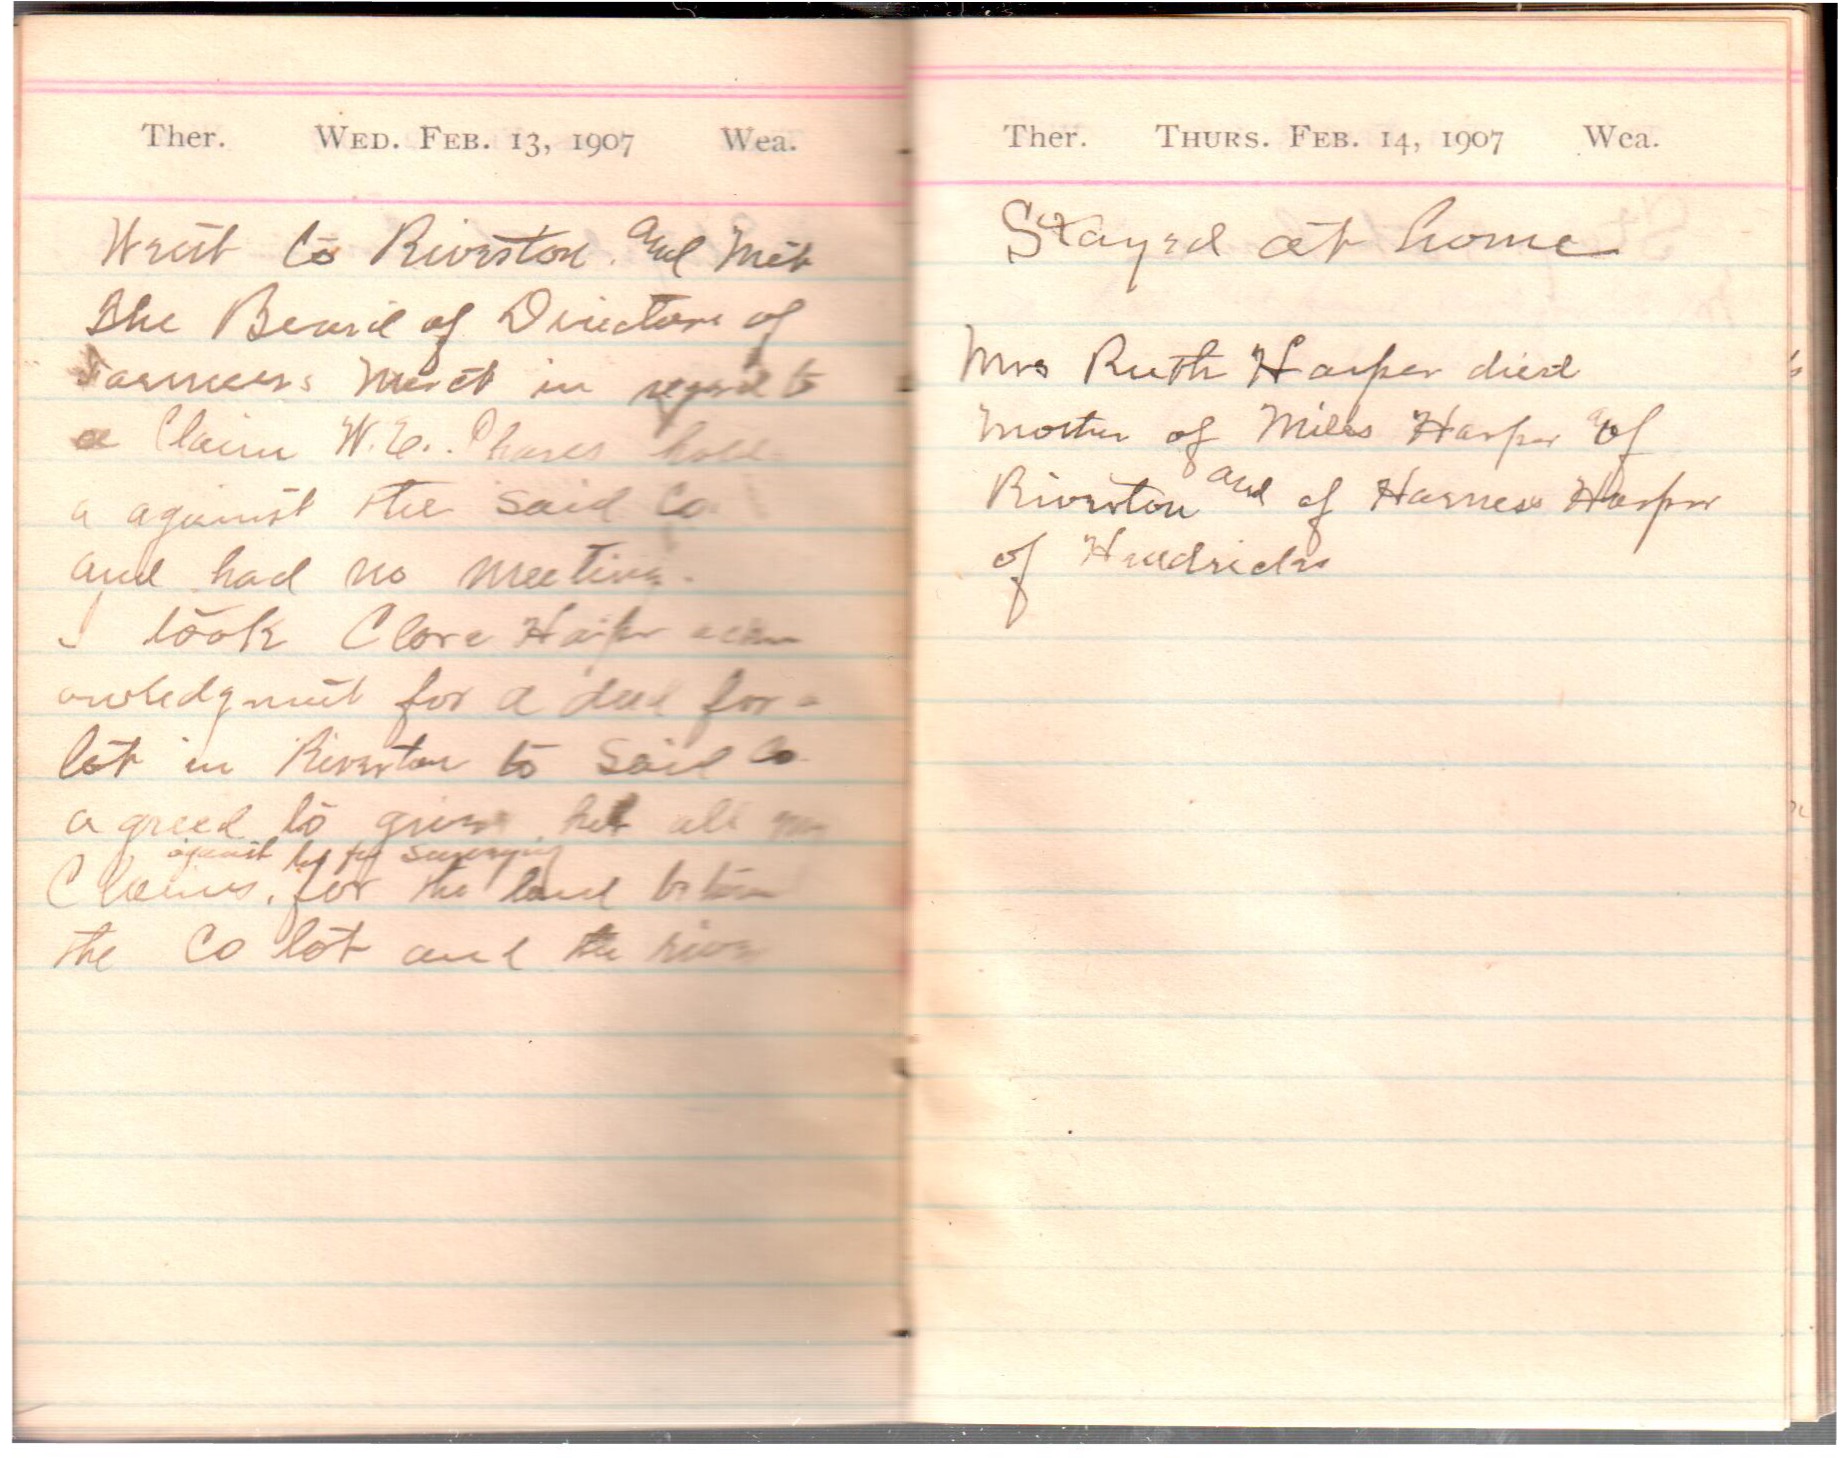 Ther. WED. FEB. 13, 1907 Wea.
Went to Riverton and Met
the Board of Directors of
Farmers Merct in regard to
a Claim W.E. Phares hold
a against the said Co
and had no meeting.
I took Clore Harper ackn
owledgment for a deed for a
lot in Riverton to Said Co
agreed to give her all my
against her for surveying
Claims, for the land between
the Co lot and the river
Ther. THURS. FEB. 14, 1907 Wea.
Stayed at home
Mrs Ruth Harper died
Mother of Miles Harper of
Riverton and of Harness Harper
of Hendricks